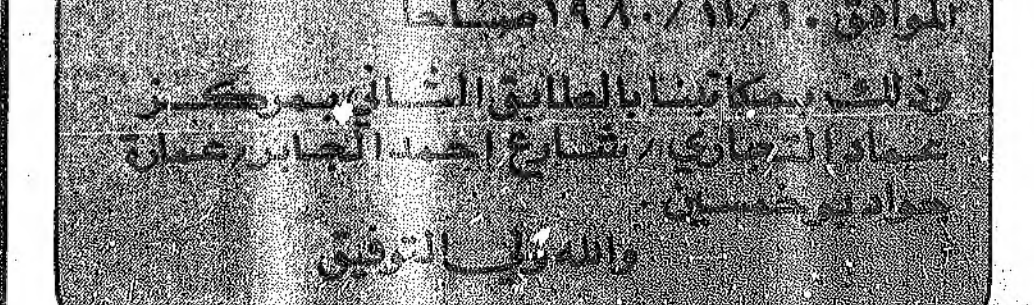 الموافق ١٩٨٠/١١/١٠ صباحا
وذلك بمكاتبنا بالطابق الثاني بمركز
عماد التجاري / شارع احمد الجابر / عمارة
جواد بوخمسين .
والله ولي التوفيق